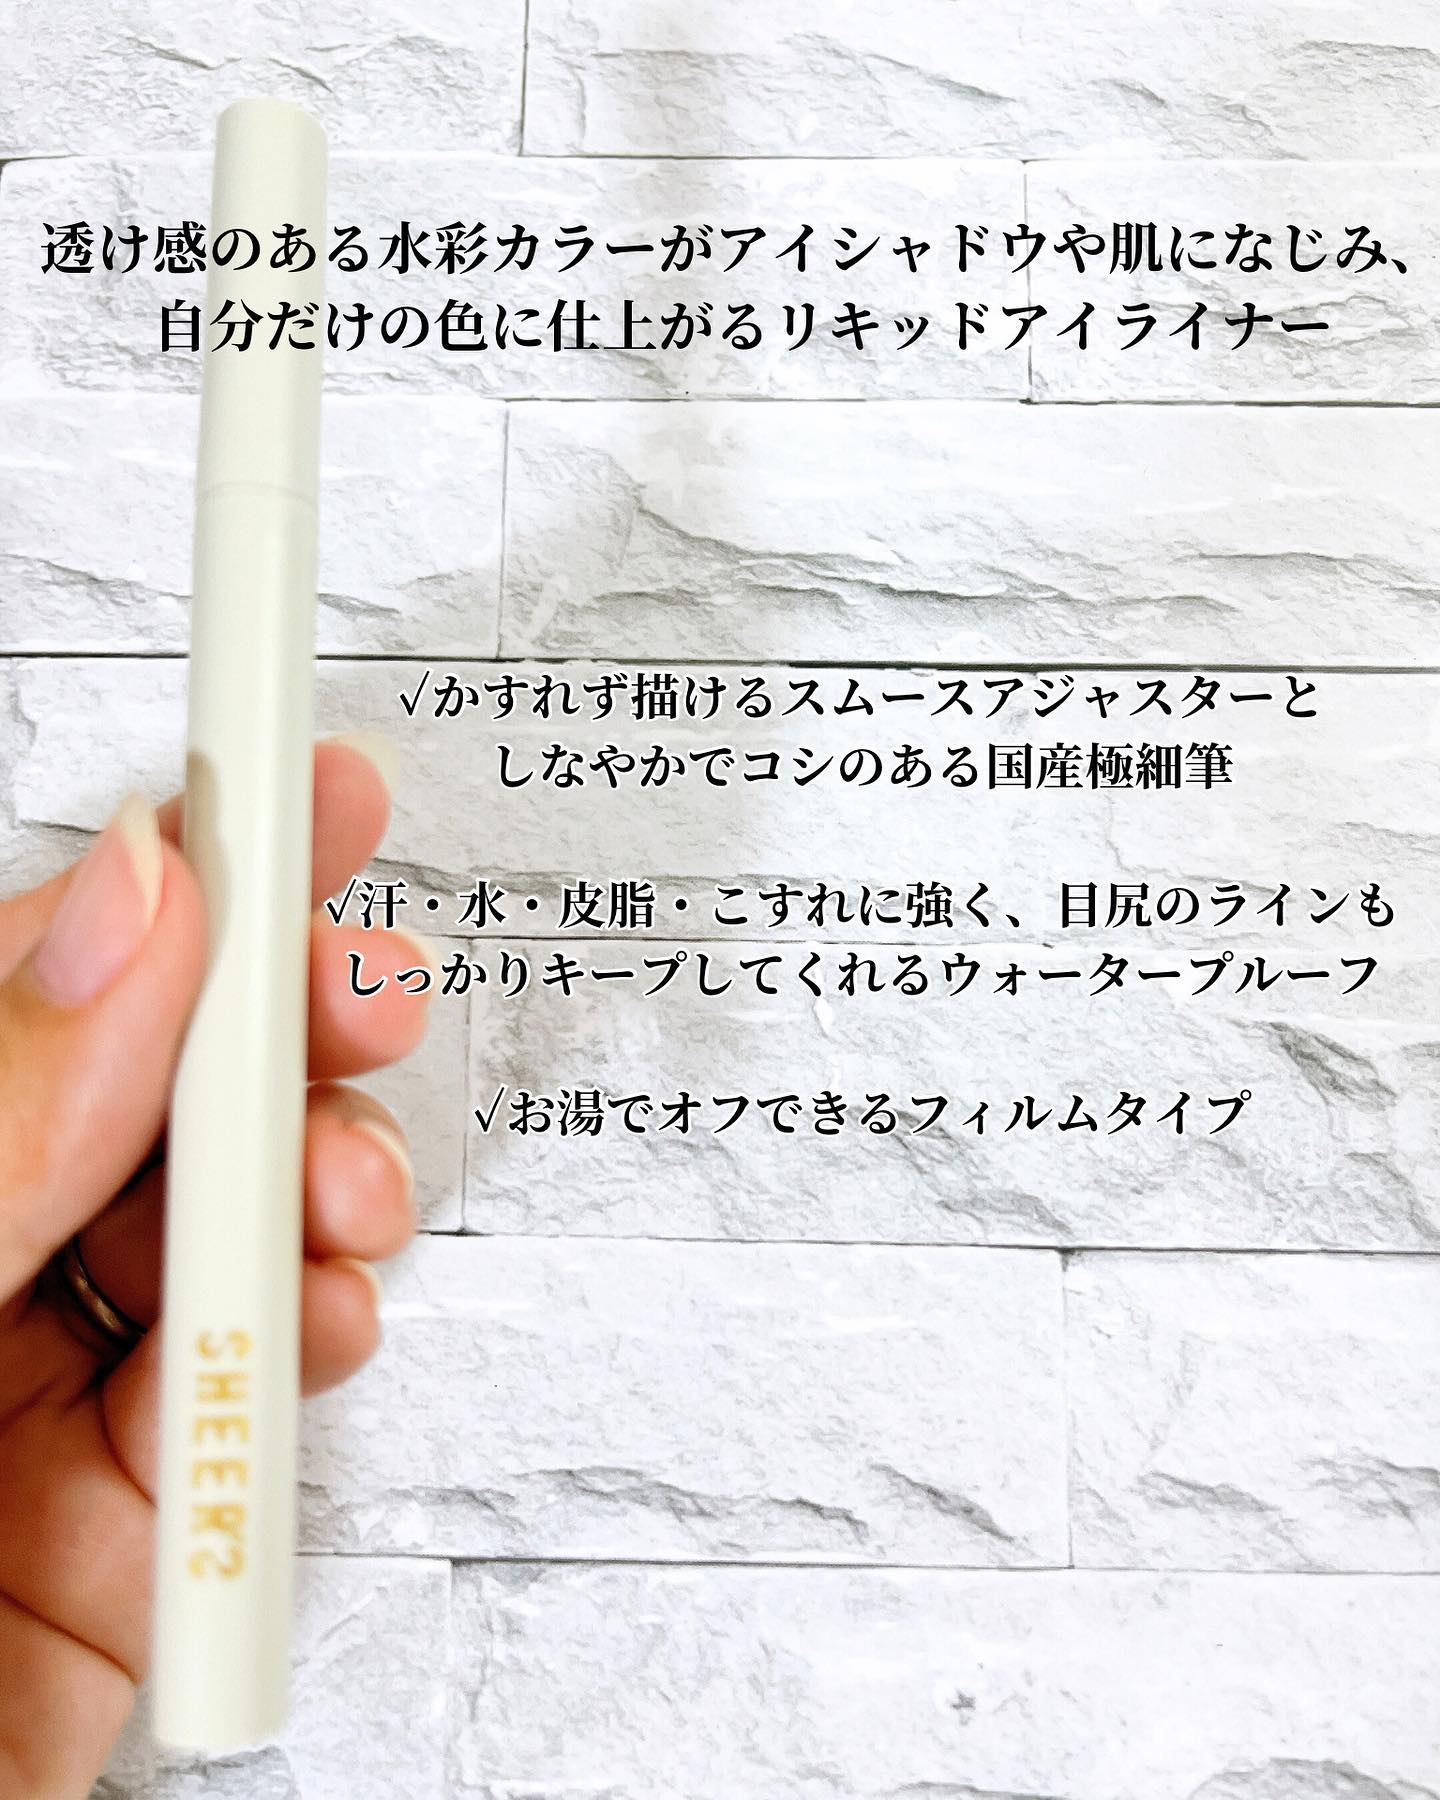 透け感のある水彩カラーがアイシャドウや肌になじみ、
自分だけの色に仕上がるリキッドアイライナー
√かすれず描けるスムースアジャスターと
しなやかでコシのある国産極細筆
√汗・水・皮脂・こすれに強く、目尻のラインも
しっかりキープしてくれるウォータープルーフ
√お湯でオフできるフィルムタイプ
SHEERS